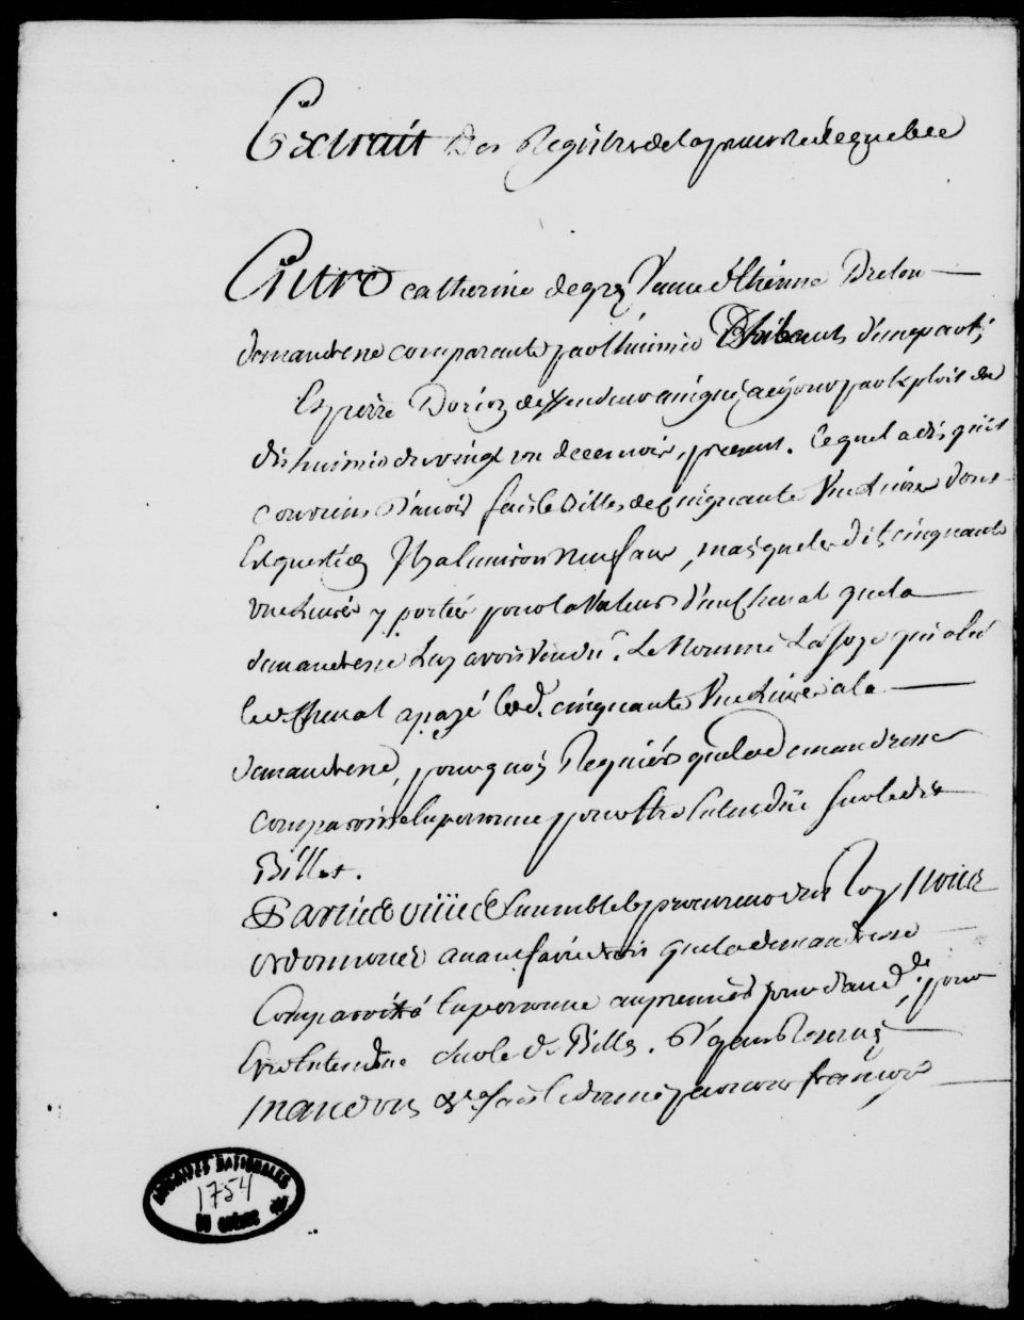 Extrait Des Registres de la prevosté de quebec
Entre catherine degrez Veuve d'Ethienne Breton
demanderesse comparante par l'huissier Thibault d'une part,
Et pierre Dorion deffendeur assigné a ce jour par Exploit du
dit huissier du vingt un decembre, present. lequel a dit qu'il
convient D'avoir fait le Billet de cinquante Une Livres dont
Est question Il y a Environ neuf ans, mais que les dits cinquante
une Livres y portée pour la Valeur d'un cheval que la
demanderesse Luy avoit Vendu. Le Nommé La joye qui a eu
led. cheval a payé lesd. cinquante Une Livres a la
demanderesse, pourquoy Requiers que la demanderesse
comparoisse En personne pour Etre Entendüe sur le dit
Billet.
Parties ouies Ensemble le procureur du Roy Nous
ordonnons avant faire droit que la demanderesse
Comparoitra En personne au premier jour d'aud.ce pour
Etre Entendüe sur le d. Billet. Depens Reservés
Mandons &c.a fait et donné par nous françois
ARCHIVES NATIONALES
1754
DU QUÉBEC